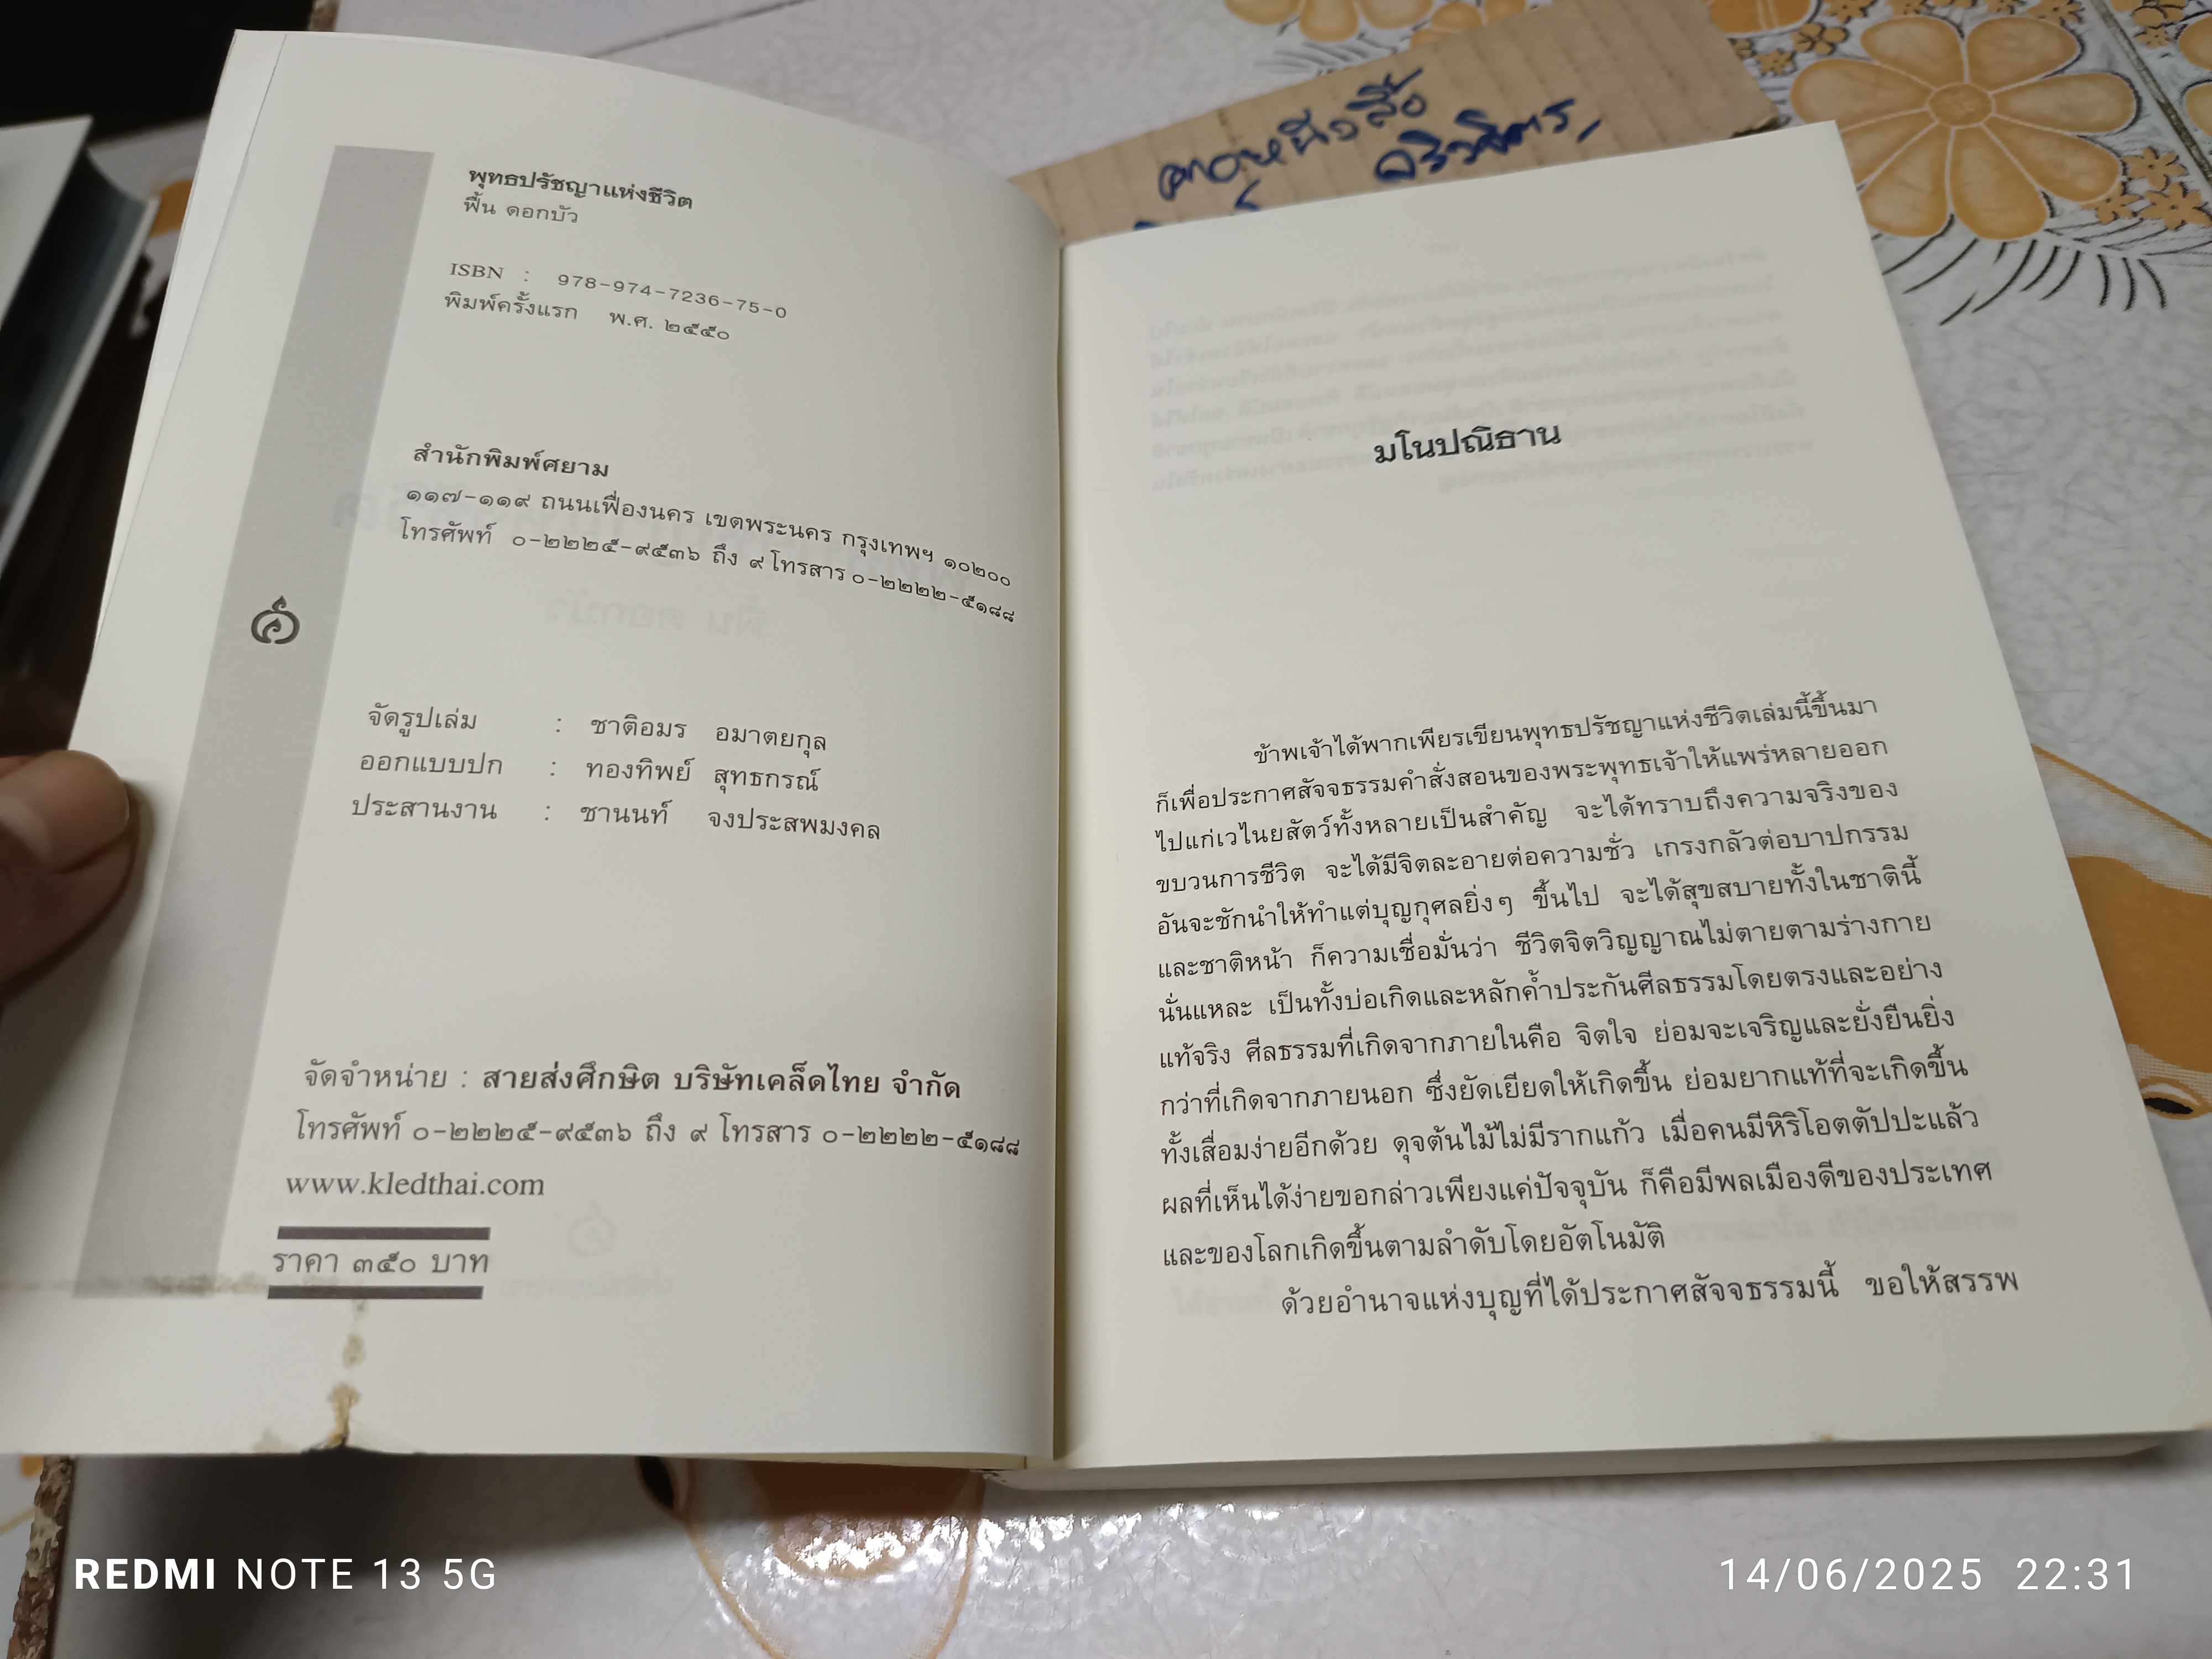 พุทธปรัชญาแห่งชีวิต
ฟื้น ดอกบัว
ISBN : 978-974-7236-75-0
พิมพ์ครั้งแรก พ.ศ. ๒๕๕๐
สำนักพิมพ์ศยาม
๑๑๗-๑๑๙ ถนนเฟื่องนคร เขตพระนคร กรุงเทพฯ ๑๐๒๐๐
โทรศัพท์ ๐-๒๒๒๕-๙๕๓๖ ถึง ๙ โทรสาร ๐-๒๒๒๒-๕๑๘๘
จัดรูปเล่ม : ชาติอมร อมาตยกุล
ออกแบบปก : ทองทิพย์ สุทธกรณ์
ประสานงาน : ชานนท์ จงประสพมงคล
จัดจำหน่าย : สายส่งศึกษิต บริษัทเคล็ดไทย จำกัด
โทรศัพท์ ๐-๒๒๒๕-๙๕๓๖ ถึง ๙ โทรสาร ๐-๒๒๒๒-๕๑๘๘
www.kledthai.com
ราคา ๓๕๐ บาท
มโนปณิธาน
ข้าพเจ้าได้พากเพียรเขียนพุทธปรัชญาแห่งชีวิตเล่มนี้ขึ้นมา
ก็เพื่อประกาศสัจจธรรมคำสั่งสอนของพระพุทธเจ้าให้แพร่หลายออก
ไปแก่เวไนยสัตว์ทั้งหลายเป็นสำคัญ จะได้ทราบถึงความจริงของ
ขบวนการชีวิต จะได้มีจิตละอายต่อความชั่ว เกรงกลัวต่อบาปกรรม
อันจะชักนำให้ทำแต่บุญกุศลยิ่งๆ ขึ้นไป จะได้สุขสบายทั้งในชาตินี้
และชาติหน้า ก็ความเชื่อมั่นว่า ชีวิตจิตวิญญาณไม่ตายตามร่างกาย
นั่นแหละ เป็นทั้งบ่อเกิดและหลักค้ำประกันศีลธรรมโดยตรงและอย่าง
แท้จริง ศีลธรรมที่เกิดจากภายในคือ จิตใจ ย่อมจะเจริญและยั่งยืนยิ่ง
กว่าที่เกิดจากภายนอก ซึ่งยัดเยียดให้เกิดขึ้น ย่อมยากแท้ที่จะเกิดขึ้น
ทั้งเสื่อมง่ายอีกด้วย ดุจต้นไม้ไม่มีรากแก้ว เมื่อคนมีหิริโอตตัปปะแล้ว
ผลที่เห็นได้ง่ายขอกล่าวเพียงแค่ปัจจุบัน ก็คือมีพลเมืองดีของประเทศ
และของโลกเกิดขึ้นตามลำดับโดยอัตโนมัติ
ด้วยอำนาจแห่งบุญที่ได้ประกาศสัจจธรรมนี้ ขอให้สรรพ
REDMI NOTE 13 5G
14/06/2025 22:31